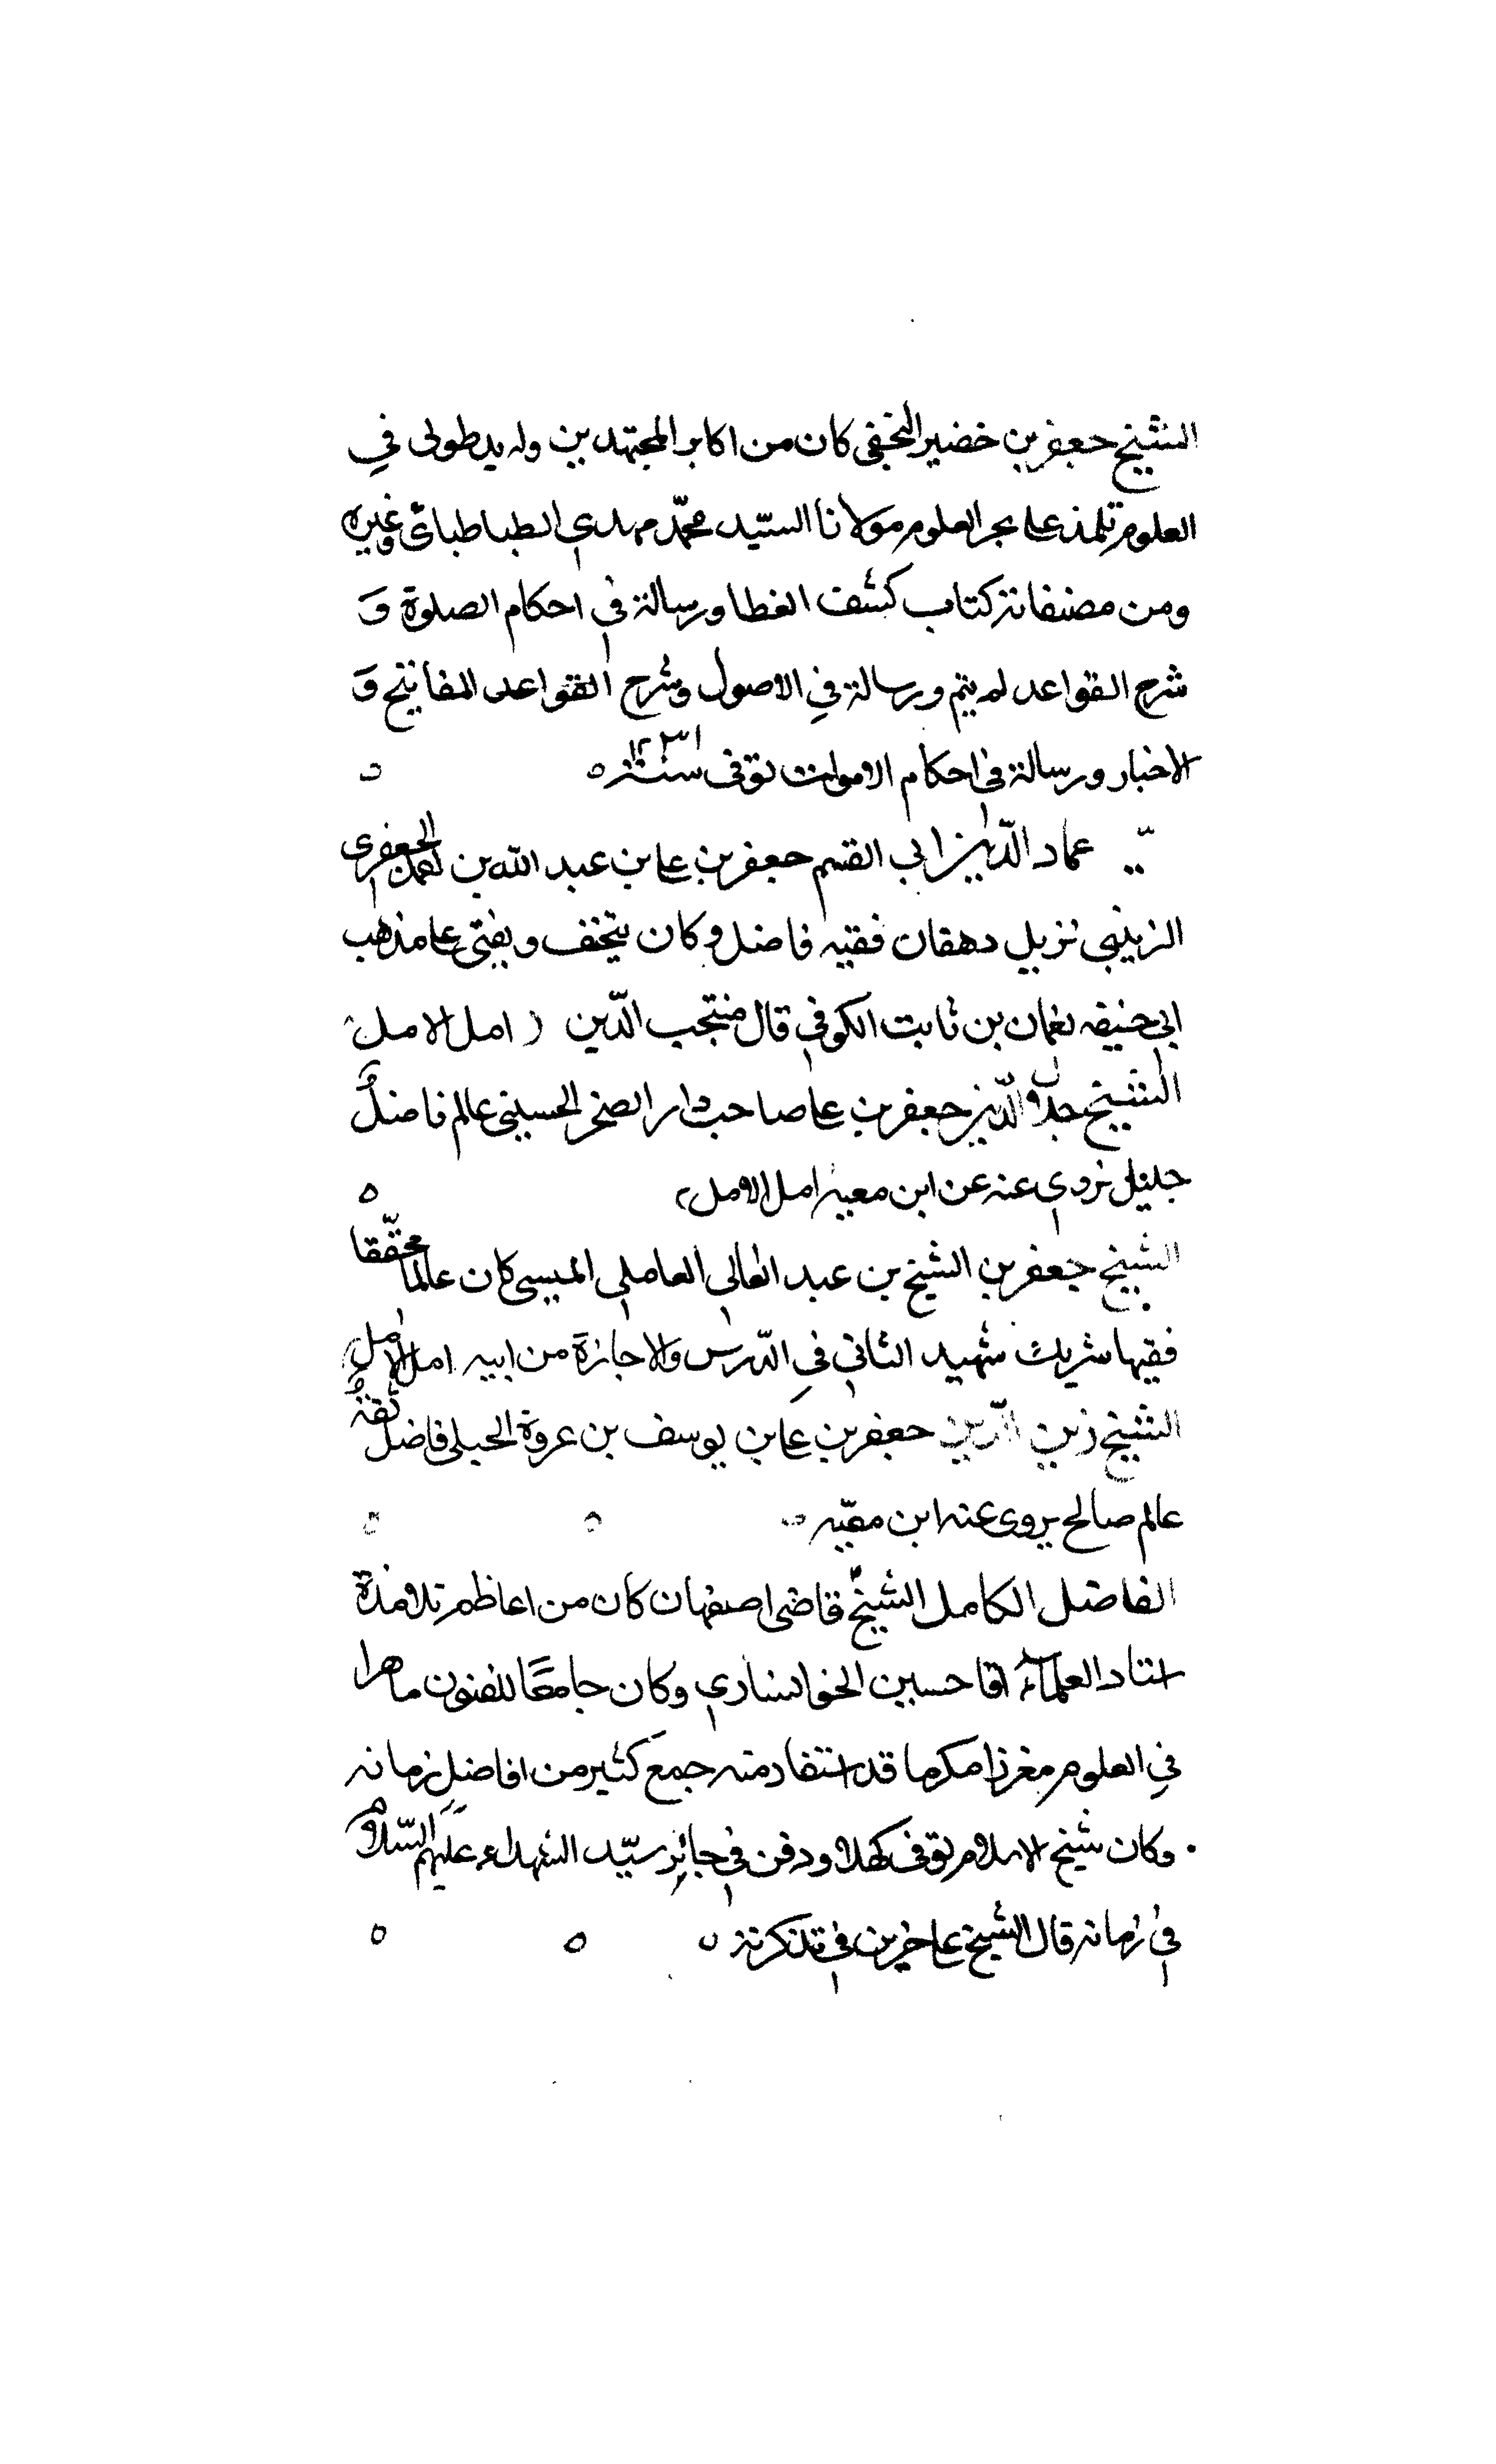 الشيخ جعفر بن خضير النجفى كان من اكابر المجتهدين وله يد طولى فِي
العلوم تلمذ على بحر العلوم مولانا السيّد محمّد مهدي الطباطبائى وغيره
ومن مصنفاته كتاب كشف الغطا ورسالة في احكام الصلوة وَ
شرح القواعد لم يتم ورسالة فِي الاصول وشرح القواعد المفاتيح وَ
الاخبار ورسالة في احكام الاموات توفى سنة ١٢٣١
عماد الدّين ابى القسم جعفر بن على بن عبد الله بن الجعفرى
الزينبى نزيل دهقان فقيه فاضل وكان يتحنف ويفتى على مذهب
ابي حنيفه نعمان بن ثابت الكوفي قال منتجب الدّين ( امل الامل
الشيخ جلال الدّين جعفر بن على صاحب دار الصخر الحسينى عالم فاضلٌ
جليل نروي عنه عن ابن معيه امل الامل
الشيخ جعفر بن الشيخ بن عبد العالي العاملي الميسى كان عالما محقّقا
فقيها شريك شهيد الثاني فِي الدّرس والاجازة من ابيه امل الامل
الشيخ زين الدّين جعفر بن على بن يوسف بن عروة الحلى فاضل ثقةٌ
عالم صالح يروى عنه ابن معيّه
الفاضل الكامل الشيخ قاضى اصفهان كان من اعاظم تلامذة
استاد العلماء اقا حسين الخوانساري وكان جامعًا للفنون ماهرا
فِي العلوم معززا مكرما قد استفاد منه جمع كثير من افاضل زمانه
وكان شيخ الاسلام توفى كهلا ودفن في حائر سيّد الشهداء عليهم السّلام
في زمانه قال الشيخ على حزين في تذكرته